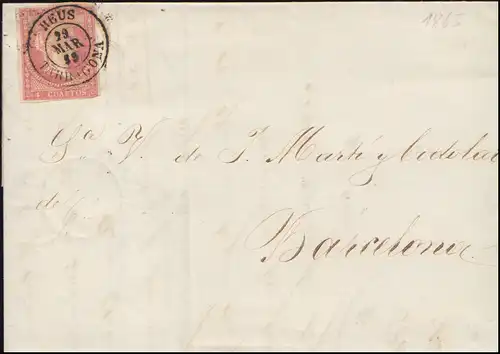 REUS
29
MAR
TARRAGONA
4 CUARTOS
1865
Sa. V. de J. Martí y
de
Barcelona